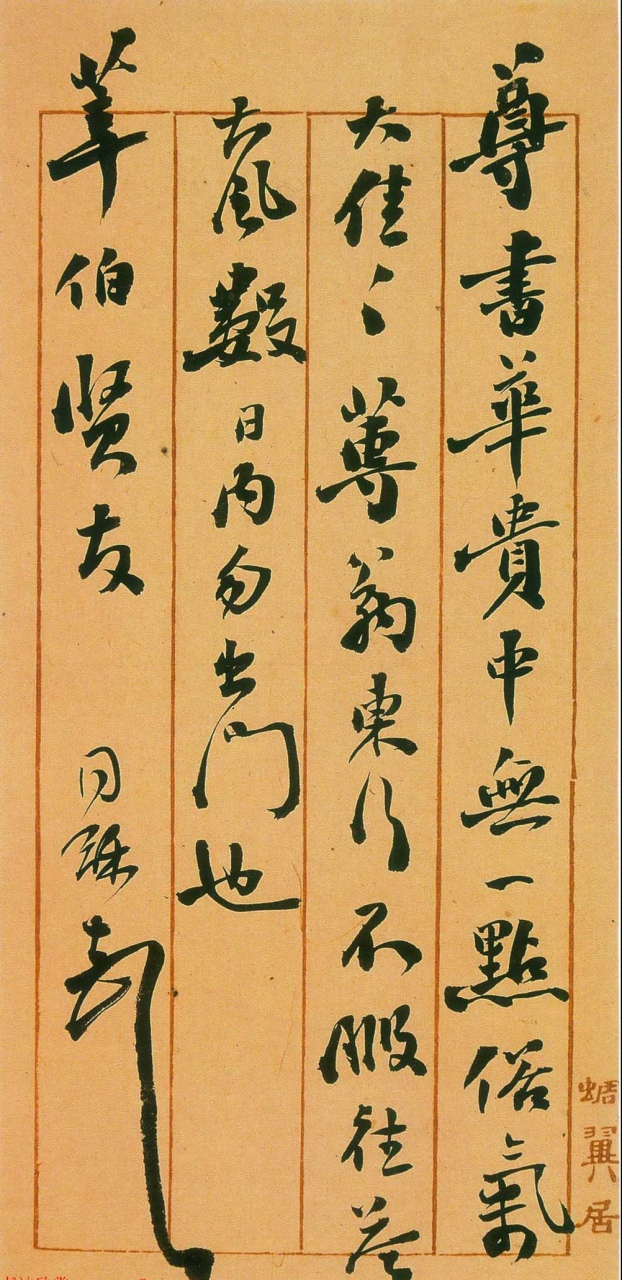 尊書華貴中無一點俗氣
大佳〻尊翁東行不暇往答
大風數日內勿出門也
莘伯賢友
同龢
翼居